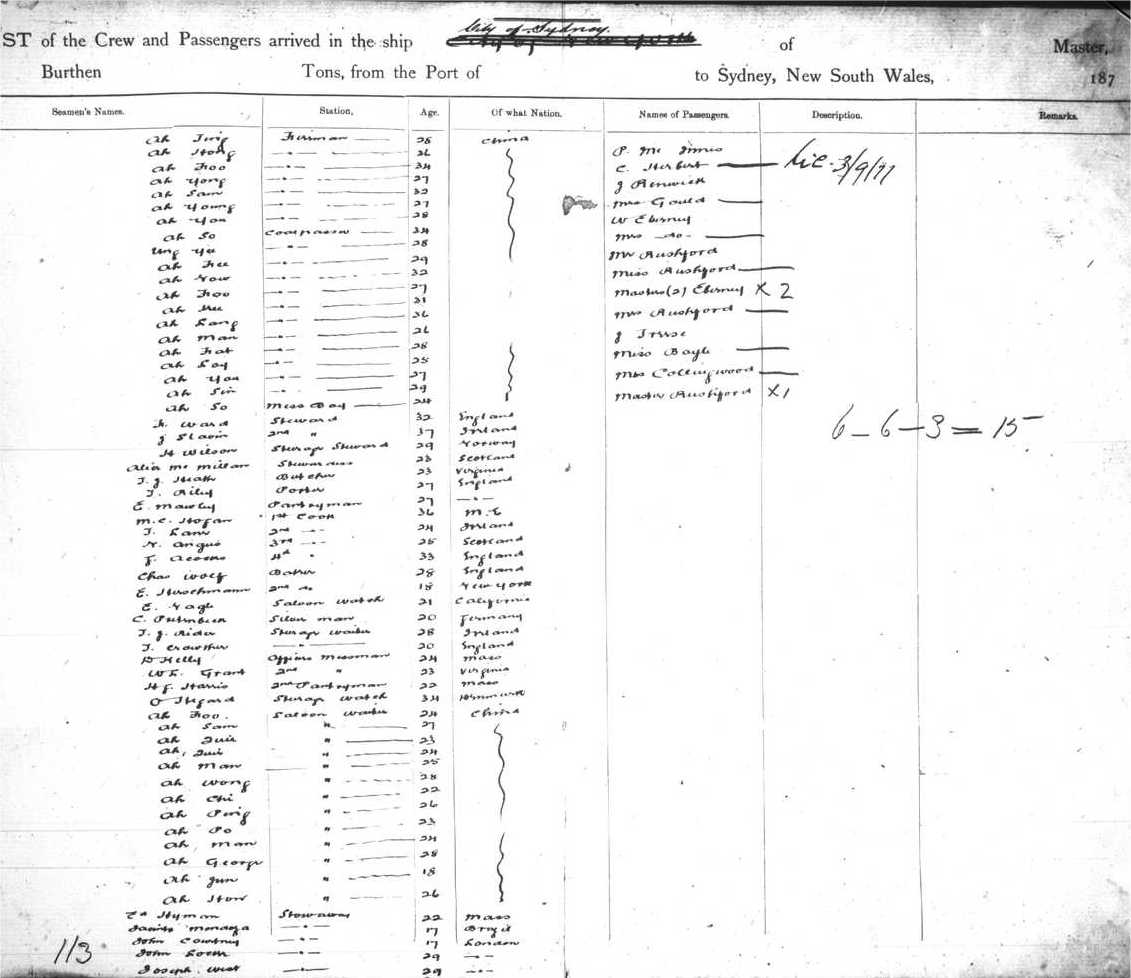 City of Sydney.
ST of the Crew and Passengers arrived in the ship of Master,
Burthen Tons, from the Port of to Sydney, New South Wales, 187
Seamen's Names. Station, Age. Of what Nation. Names of Passengers. Description. Remarks.
Ah Fireman 28 China P. Mc Innes
Ah Hong —"— 26 C. Herbert — Lic. 3/9/77
Ah Foo —"— 34 J Renwick
Ah Yong —"— 27 Mrs Gould —
Ah Sam —"— 32 W Eberney
Ah Young —"— 27 Mrs —do— —
Ah You —"— 28 Mr Rushford
Ah So Coalpasser 34 Miss Rushford —
Ung Ye —"— 28 Masters (2) Eberney X 2
Ah Fee —"— 29 Mrs Rushford —
Ah Yow —"— 32 J
Ah Foo —"— 27 Miss Bayle —
Ah —"— 31 Mrs Collingwood —
Ah Lang —"— 36 Master Rushford X 1
Ah Man —"— 26
Ah Fat —"— 28 6 – 6 – 3 = 15
Ah Loy —"— 25
Ah You —"— 27
Ah Sin —"— 29
Ah So Mess Boy 24
Ward Steward 32 England
J Slavin 2nd " 37 Ireland
H Wilson Steerage Steward 29 Norway
Alice Mc Millan Stewardess 23 Scotland
T. J. Heath Butcher 23 Virginia
T. Riley Porter 27 England
E. Mawley Pantryman 27 —"—
M. C. Hogan 1st Cook 36 M.E
T. 2nd —"— 24 Ireland
Angus 3rd —"— 25 Scotland
4th " 33 England
Chas Wolf Baker 28 England
E. Hirschmann 2nd do 18 New York
E. Nagle Saloon Watch 21 California
C. Silver man 20 Germany
T. J. Rider Steerage Waiter 28 Ireland
T. Crowther —"— 20 England
D Kelly Officers Messman 24 Mass
W. E. Grant 2nd " 23 Virginia
H J. Harris 2nd Pantryman 22 Mass
O Steerage Watch 34 Denmark
Ah Foo. Saloon Waiter 24 China
Ah Sam " 27
Ah " 23
Ah " 24
Ah Man 25
Ah Wong " 28
Ah Chi " 22
Ah " 26
Ah Po " 23
Ah Man " 24
Ah George " 28
Ah Jun " 18
Ah How " 26
Ed Hyman Stowaway 22 Mass
Mendoza —"— 17 Brazil
John Courtney —"— 17 London
John —"— 29 —"—
Joseph West —"— 29 —"—
113